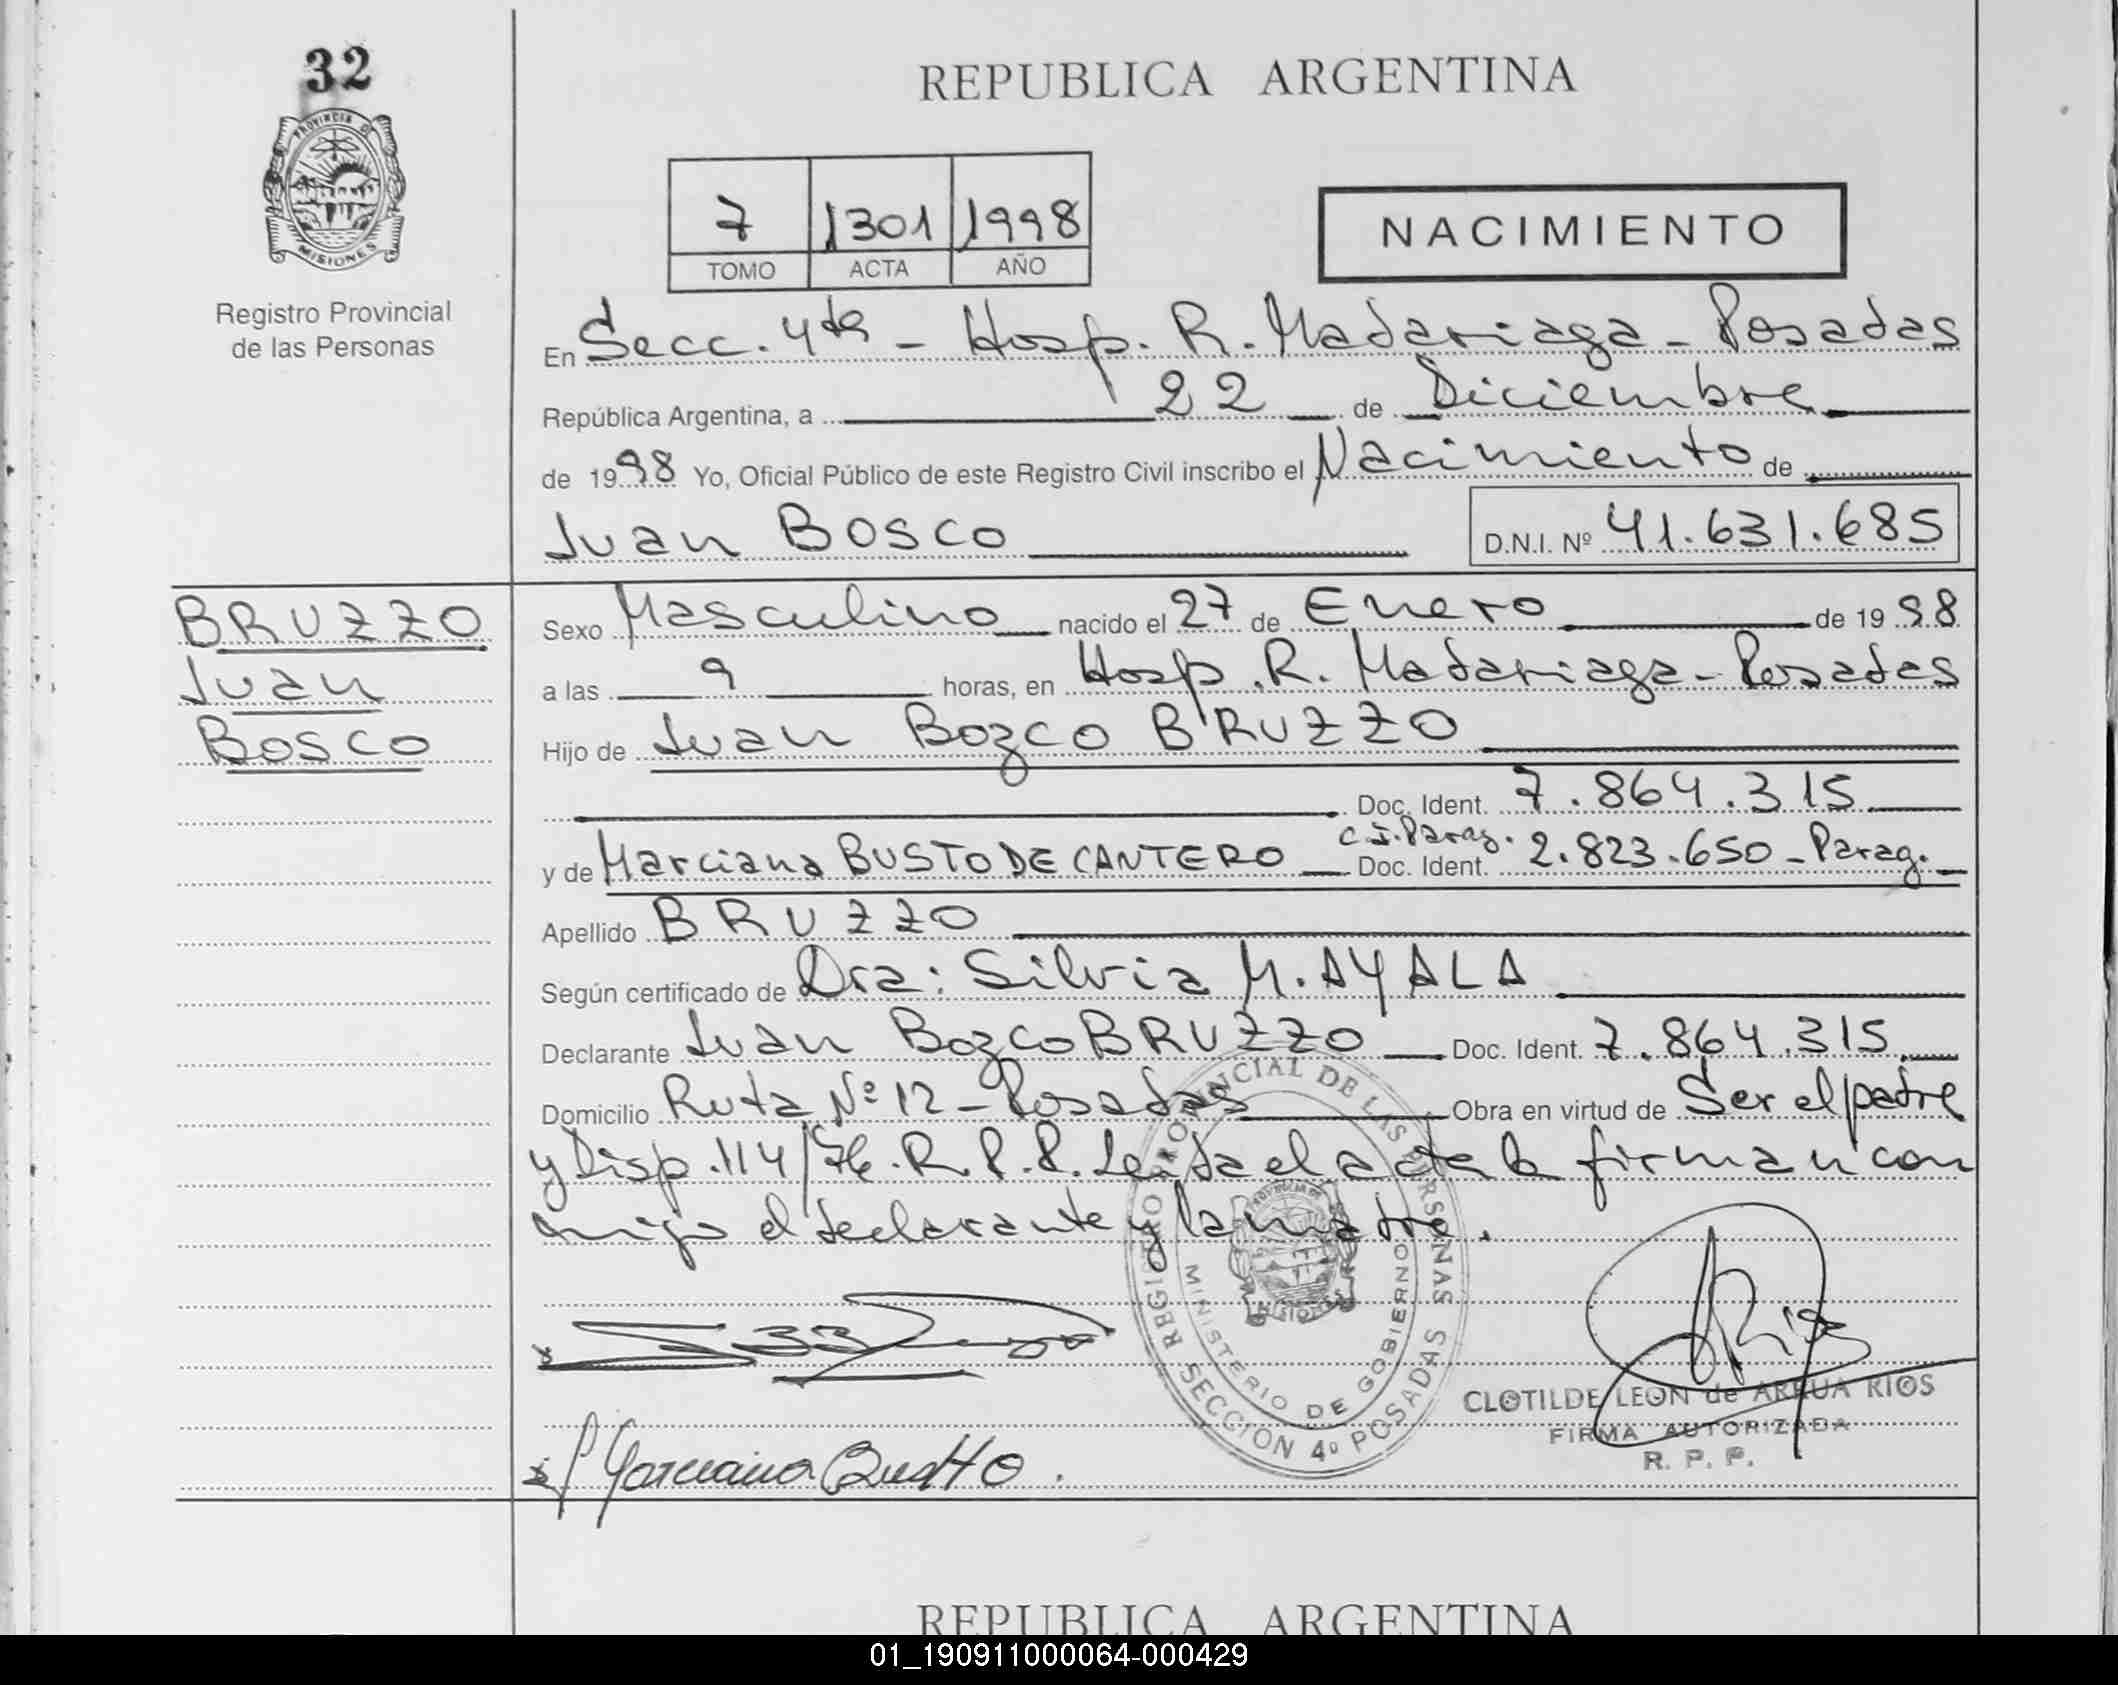 32
PROVINCIA DE
MISIONES
Registro Provincial
de las Personas
REPUBLICA ARGENTINA
7 1301 1998
TOMO ACTA AÑO
NACIMIENTO
En Secc. 4ta - Hosp. R. Madariaga - Posadas
República Argentina, a 22 de Diciembre
de 1998 Yo, Oficial Público de este Registro Civil inscribo el Nacimiento de
Juan Bosco D.N.I. Nº 41.631.685
BRUZZO
Juan
Bosco
Sexo Masculino nacido el 27 de Enero de 1998
a las 9 horas, en Hosp. R. Madariaga - Posadas
Hijo de Juan Bozco BRUZZO
Doc. Ident. 7.864.315
C.I. Parag.
y de Marciana BUSTO DE CANTERO Doc. Ident. 2.823.650 - Parag.
Apellido BRUZZO
Según certificado de Dra: Silvia M. AYALA
Declarante Juan Bozco BRUZZO Doc. Ident. 7.864.315
Domicilio Ruta Nº 12 - Posadas Obra en virtud de Ser el padre
y Disp. 114/76. R.P.P. Leída el acta la firman con
migo el declarante y la madre.
REGISTRO PROVINCIAL DE LAS PERSONAS
SECCION 4º POSADAS
MINISTERIO DE GOBIERNO
MISIONES
Rios
CLOTILDE LEON de ARRUA RIOS
FIRMA AUTORIZADA
R. P. P.
Marciana Busto.
REPUBLICA ARGENTINA
01_190911000064-000429